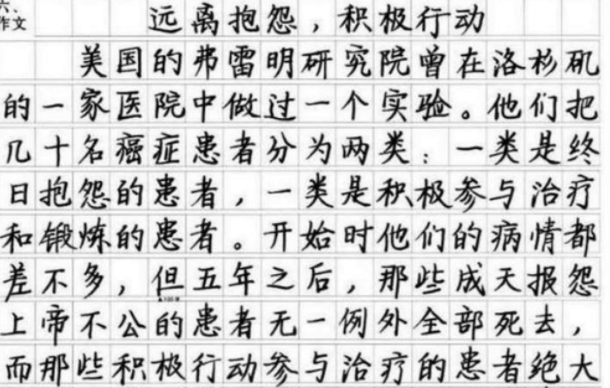 六、作文
远离抱怨，积极行动
美国的弗雷明研究院曾在洛杉矶
的一家医院中做过一个实验。他们把
几十名癌症患者分为两类：一类是终
日抱怨的患者，一类是积极参与治疗
和锻炼的患者。开始时他们的病情都
差不多，但五年之后，那些成天报怨
上帝不公的患者无一例外全部死去，
而那些积极行动参与治疗的患者绝大